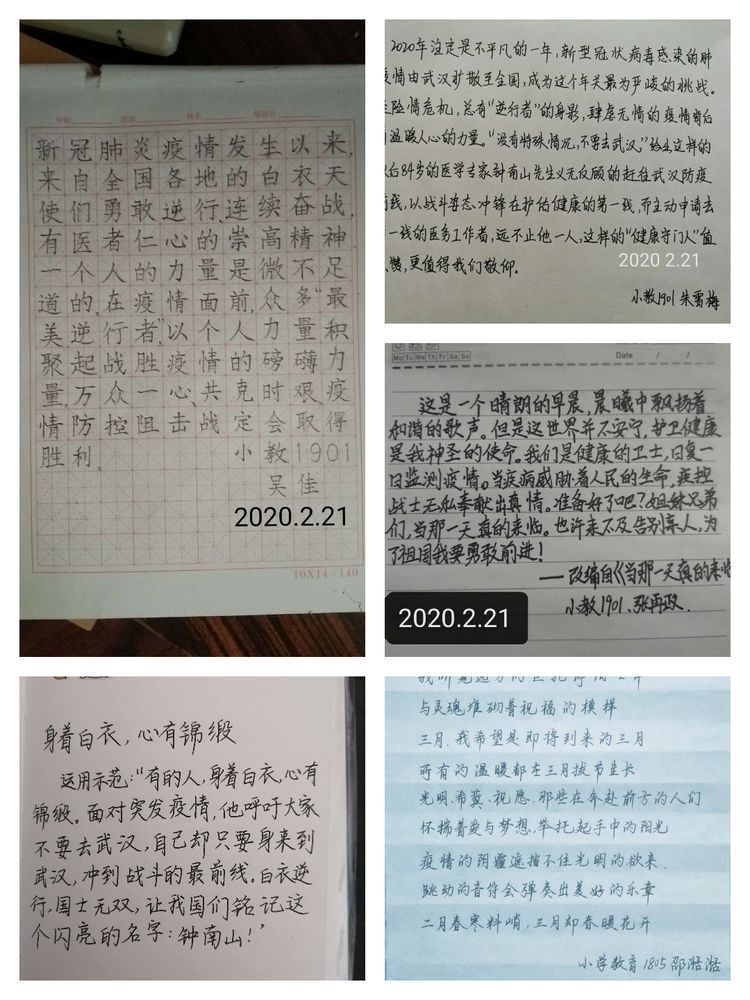 新冠肺炎疫情发生以来,
来自全国各地的白衣天
使们勇敢逆行,连续奋战,
有医者仁心的崇高精神
一个人的力量是微不足
道的,在疫情面前,众多“最
美逆行者”,以个人力量积
聚起战胜疫情的磅礴力
量,万众一心,共克时艰,疫
情防控阻击战定会取得
胜利。 小教1901
吴佳
2020.2.21
10X14=140
2020年注定是不平凡的一年,新型冠状病毒感染的肺
疫情由武汉扩散至全国,成为这个年关最为严峻的挑战。
险情危机,总有“逆行者”的身影,肆虐无情的疫情背后
温暖人心的力量。“没有特殊情况,不要去武汉,”给出这样的
后84岁的医学专家钟南山先生义无反顾的赶往武汉防疫
线,以战斗姿态冲锋在护佑健康的第一线,而主动申请去
一线的医务工作者,远不止他一人,这样的“健康守门人”值
赞,更值得我们敬仰。
2020 2.21
小教1901 朱雪梅
Mo Tu We Th Fr Sa Su Date / /
这是一个晴朗的早晨,晨曦中飘扬着
和谐的歌声。但是这世界并不安宁,护卫健康
是我神圣的使命。我们是健康的卫士,日复一
日监测疫情。当疾病威胁着人民的生命,疾控
战士无私奉献出真情。准备好了吧?姐妹兄弟
们,当那一天真的来临。也许来不及告别亲人,为
了祖国我要勇敢前进!
——改编自《当那一天真的来临
小教1901、张再政.
2020.2.21
身着白衣,心有锦缎
运用示范:“有的人,身着白衣,心有
锦缎。面对突发疫情,他呼吁大家
不要去武汉,自己却只要身来到
武汉,冲到战斗的最前线。白衣逆
行,国士无双,让我国们铭记这
个闪亮的名字:钟南山!”
与灵魂堆砌着祝福的模样
三月.我希望是即将到来的三月
所有的温暖都在三月拔节生长
光明.希冀.祝愿.那些在奔赴前方的人们
怀揣着爱与梦想,举托起手中的阳光
疫情的阴霾遮挡不住光明的欲来.
跳动的音符会弹奏出美好的乐章
二月春寒料峭,三月却春暖花开
小学教育1805 邵湉湉